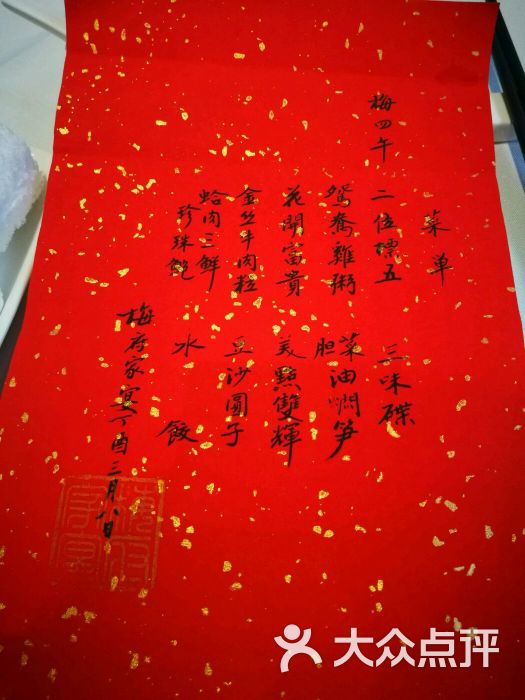 菜单
梅四午 二位標五
三味碟
鴛鴦雞粥 菜胆油燜笋
花開富貴 美點雙輝
金丝牛肉粒 豆沙圓子
蛤肉三鲜
珍珠鲍 水餃
梅府家宴丁酉三月八日
梅府家宴
大众点评